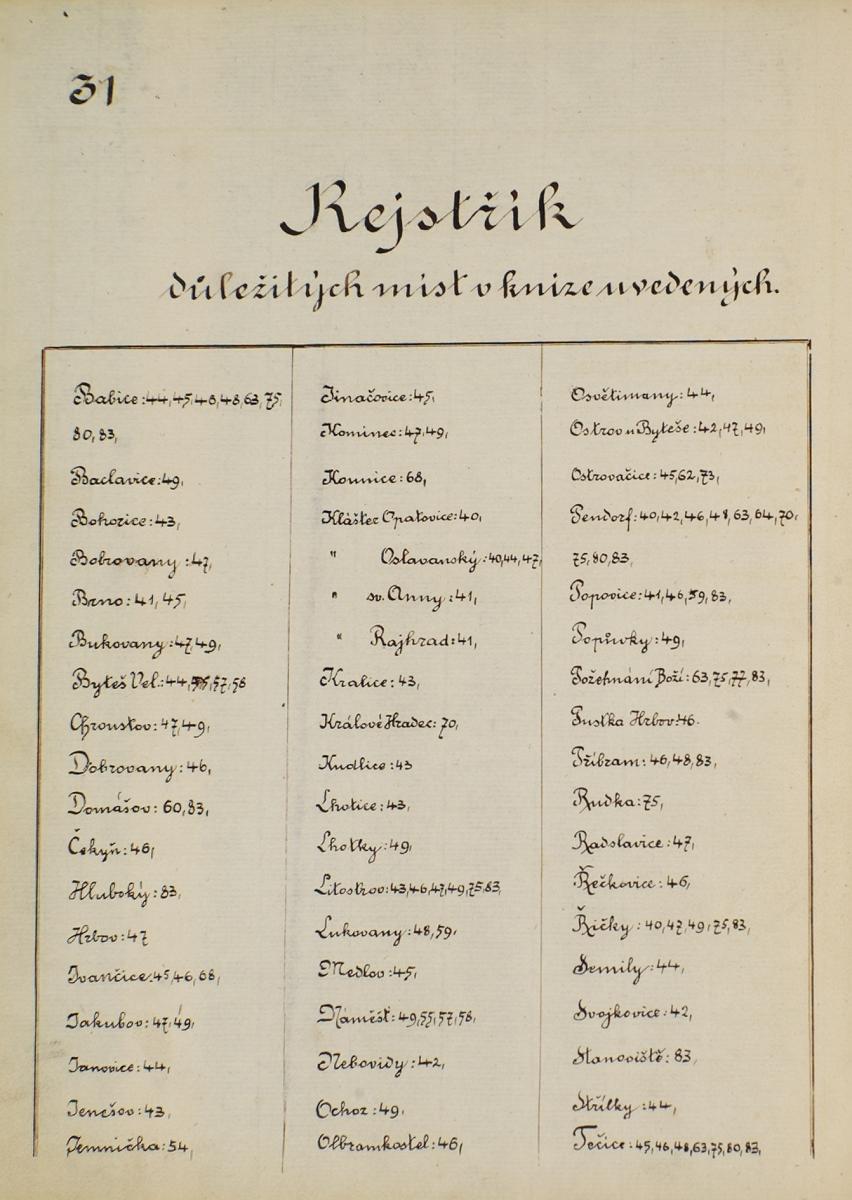 31
Rejstřík
důležitých míst v knize uvedených.
Babice: 44, 45, 48, 48, 63, 75,
80, 83,
Baclavice: 49,
Bohorice: 43,
Bobrovany: 47,
Brno: 41, 45,
Bukovany: 47, 49,
Byteš Vel.: 44, 55, 57, 58
Chroustov: 47, 49,
Dobrovany: 46,
Domášov: 60, 83,
Čekyň: 46,
Hluboký: 83,
Hrbov: 47
Ivančice: 45, 46, 68,
Jakubov: 47, 49,
Janovice: 44,
Jenešov: 43,
Jemnička: 54,
Jinačovice: 45,
Kominec: 47, 49,
Kounice: 68,
Klášter Opatovice: 40,
" Oslavanský: 40, 44, 47,
" sv. Anny: 41,
" Rajhrad: 41,
Kralice: 43,
Králové Hradec: 70,
Kudlice: 43
Lhotice: 43,
Lhotky: 49,
Litostrov: 43, 46, 47, 49, 75, 83,
Lukovany: 48, 59,
Medlov: 45,
Náměšť: 49, 55, 57, 58,
Nebovidy: 42,
Ochoz: 49,
Olbramkostel: 46,
Osvětimany: 44,
Ostrov u Byteše: 42, 47, 49,
Ostrovačice: 45, 62, 73,
Pendorf: 40, 42, 46, 48, 63, 64, 70,
75, 80, 83,
Popovice: 41, 46, 59, 83,
Popůvky: 49,
Požehnání Boží: 63, 75, 77, 83,
Pustka Hrbov: 46.
Příbram: 46, 48, 83,
Rudka: 75,
Radslavice: 47,
Řečkovice: 46,
Říčky: 40, 47, 49, 75, 83,
Semily: 44,
Svojkovice: 42,
Stanoviště: 83,
Střílky: 44,
Tečice: 45, 46, 48, 63, 75, 80, 83,